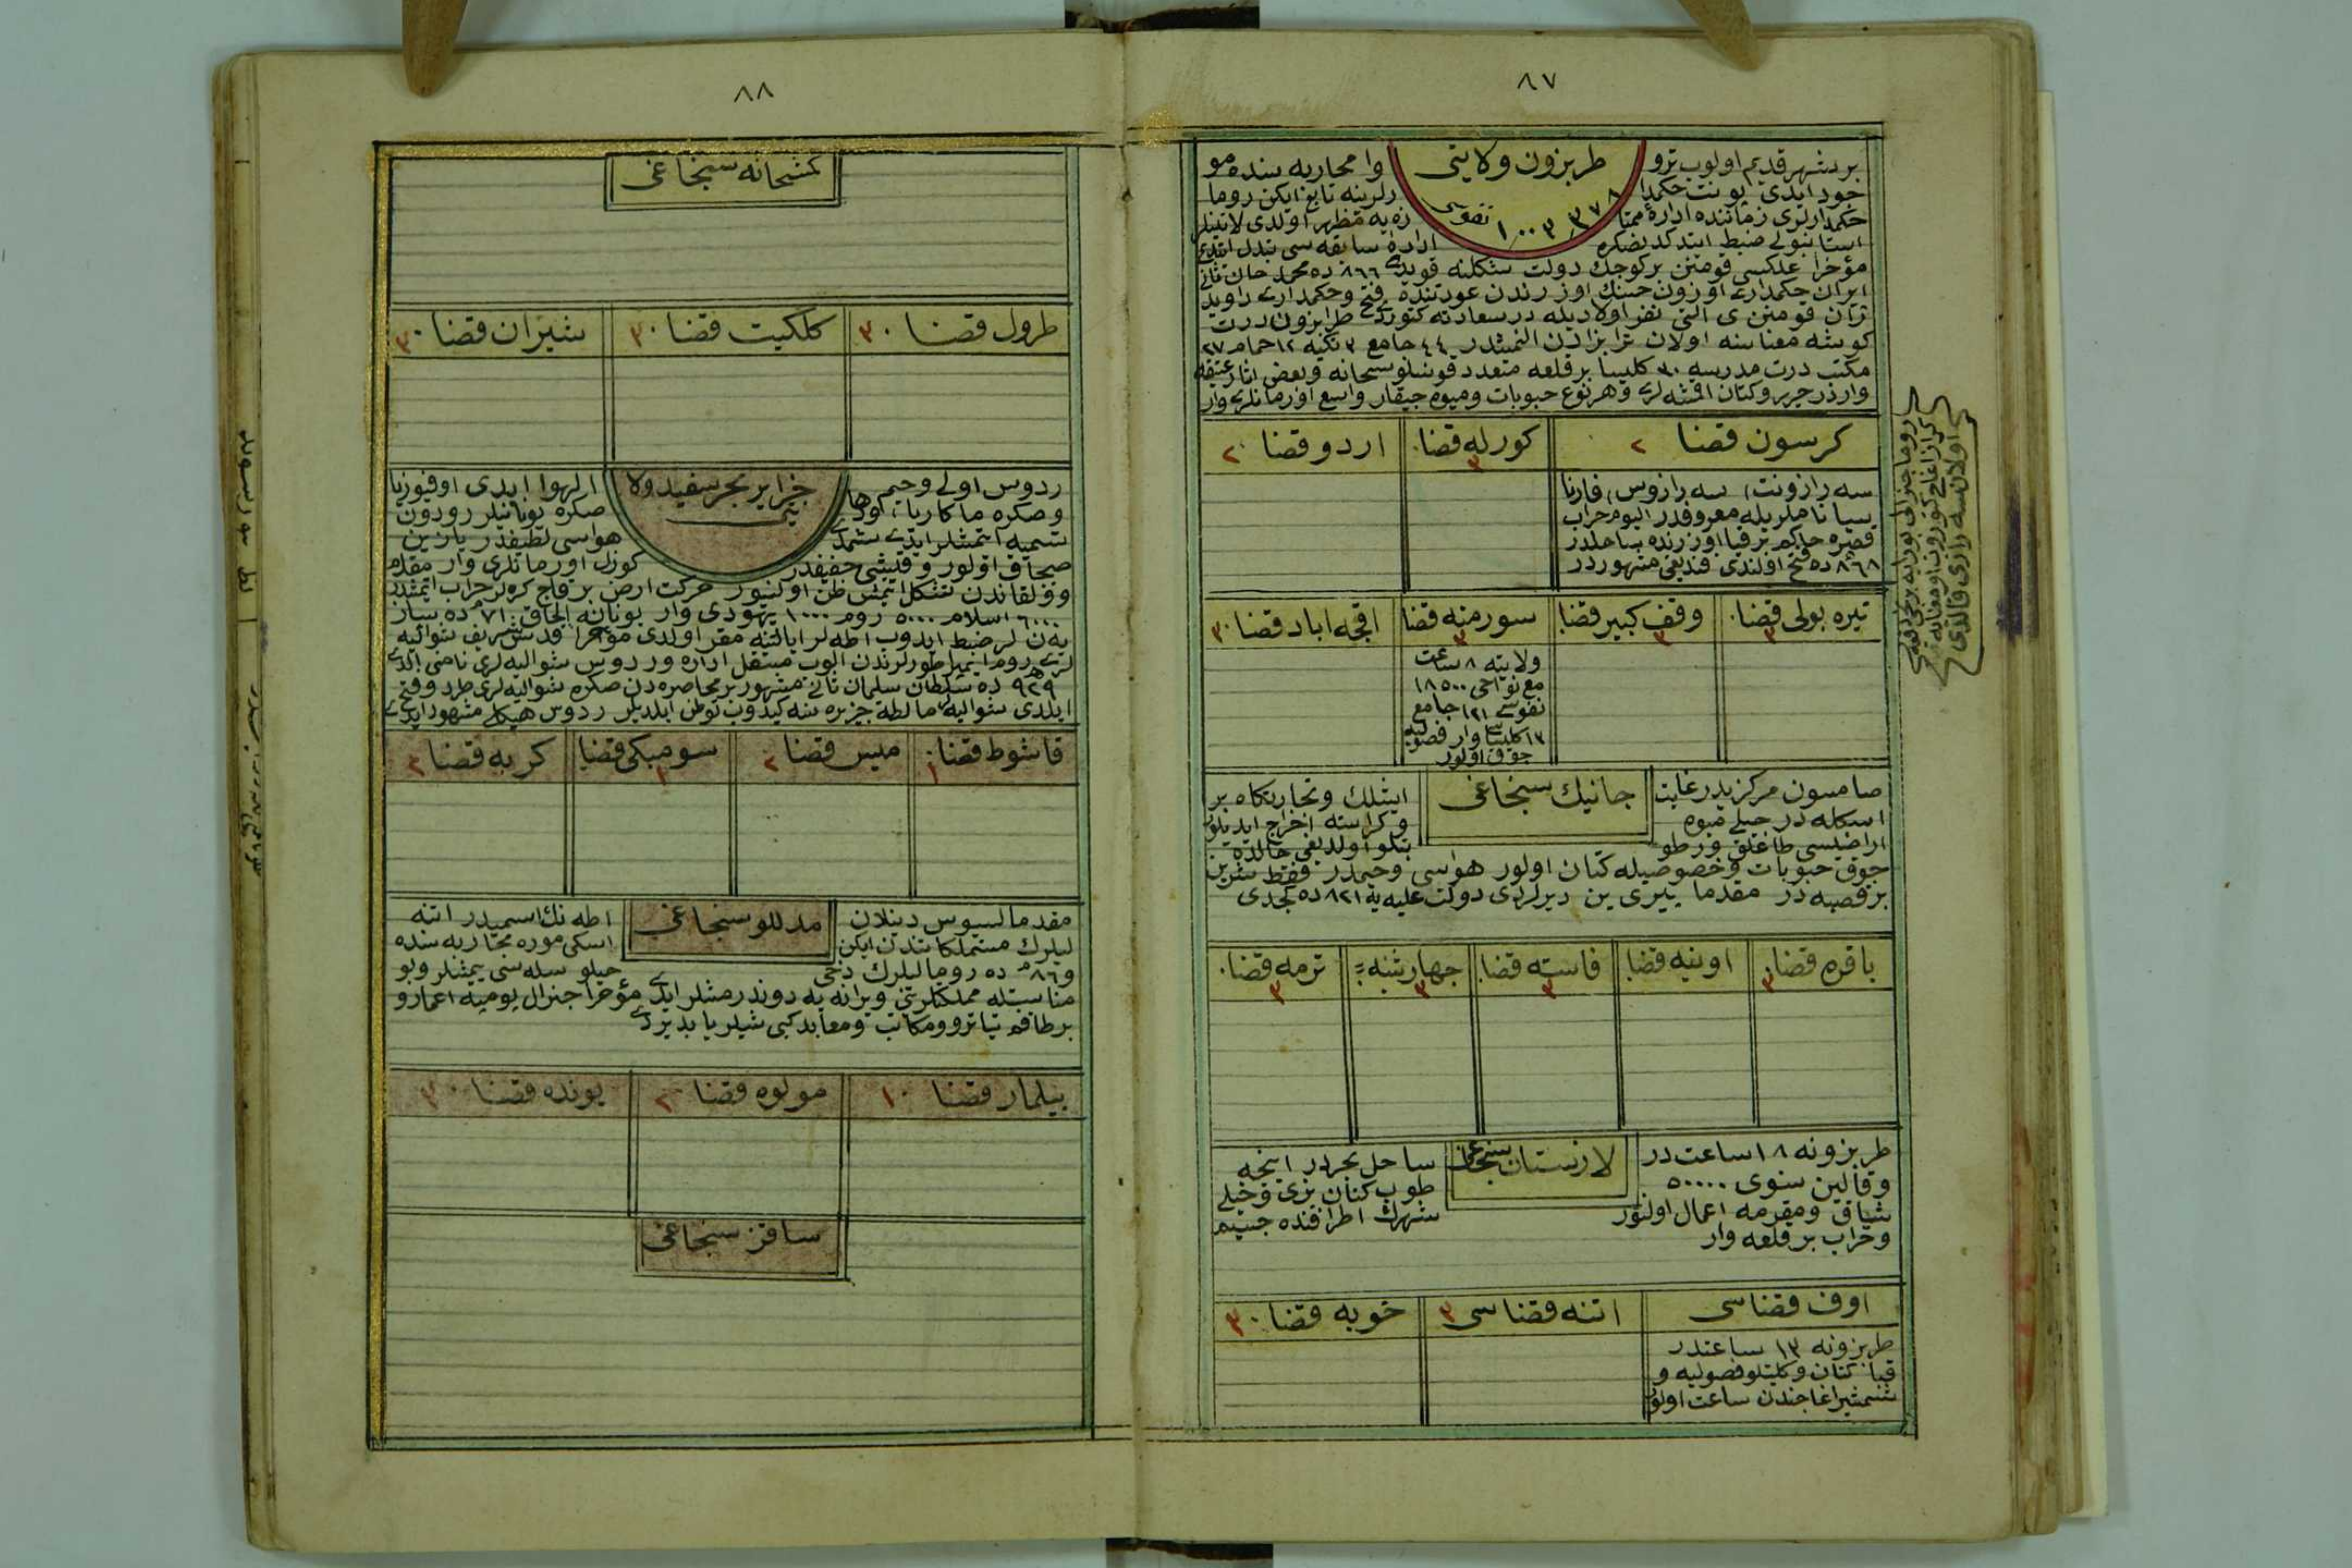 ٨٧
طربزون ولايتى
نفوسى ١٠٠٣٣٧٨
بر شهر قديم اولوب ترو وا محاربه سنده مو
جود ايدى پونت حكمدا رلرينه تابع ايكن روما
حكمدارلرى زماننده اداره ممتا زه يه مظهر اولدى لاتينلر
استانبولى ضبط ايتدكدنصكره اداره سابقه سى تبدل ايتدى
مؤخرا علكسى قومنن بر كوچك دولت شكلنه قويدى ٨٦٦ ده محمد خان ثانى
ايران حكمدارى اوزون حسنك اوزرندن عودتنده فتح وحكمدارى داويد
قومنن ى التى نفر اولاديله در سعادته كتوردى طرابزون درت
كوشه معناسنه اولان ترابزادن النمشدر ٤٤ جامع ٣ تكيه ١٢ حمام ٢٧
مكتب درت مدرسه ٣٠ كليسا بر قلعه متعدد قونسلوسخانه وبعض اثار عتيقه
واردر حرير وكتان اقمشه لرى وهر نوع حبوبات وميوه چيقار واسع اورمانلرى وار
كرسون قضا ٢
كورله قضا ٣
اردو قضا ٢
سه رازونت، سه رازوس، فارنا
سيا ناملريله معروفدر اليوم خراب
قصره حاكم بر قيا اوزرنده ساحلدر
٨٦٨ ده فتح اولندى فندغى مشهوردر
تيره بولى قضا ٣
وقف كبير قضا ٣
سورمنه قضا ٣
اقچه اباد قضا ٣
ولايته ٨ ساعت
مع نواحى ١٨٥٠٠
نفوسى ١٢١ جامع
١٣ كليسا وار فصوليه
چوق اولور
جانيك سنجاغى
صامسون مركزيدر غايت ايشلك وتجارتكاه بر
اسكله در خيلى ميوه وكراسته اخراج ايديلور
اراضيسى طاغلق ورطو بتلو اولديغى حالده
چوق حبوبات وخصوصيله كتان اولور هواسى وخيمدر فقط شيرين
بر قصبه در مقدما ييرى ين ديرلردى دولت عليه يه ٨٢١ ده كچدى
بافره قضا ٣
اونيه قضا
فاسته قضا ٣
چهارشنبه ٣
ترمه قضا ٣
لازستان سنجاغى
طربزونه ١٨ ساعت در ساحل بحردر اينجه
وقالين سنوى ٥٠٠٠٠ طوب كتان بزى وخيلى
شياق ومقرمه اعمال اولنور شهرك اطرافنده جسيم
وخراب بر قلعه وار
اوف قضاسى
اتنه قضاسى ٣
خوپه قضا ٣
طربزونه ١٣ ساعتدر
قبا كتان وكليتلو فصوليه و
شمشير اغاجندن ساعت اولور
٨٨
كمشخانه سنجاغى
طرول قضا ٣
كلكيت قضا ٣
شيران قضا ٣
جزاير بحر سفيد ولا يتى
ردوس اولى وخيم الهوا ايدى اوفيوزيا
وصكره ماكاريا، اودها صكره يونانيلر رودون
تسميه ايتمشلر ايدى شمدى هواسى لطيفدر يازين
صيجاق اولور وقيشى خفيفدر كوزل اورمانلرى وار مقدم
وولقاندن تشكل ايتمش ظن اولنيور حركت ارض بر قاچ كره لر خراب ايتمشدر
٦٠٠٠ اسلام ٥٠٠٠ روم ١٠٠٠ يهودى وار يونانه الحاق ٧١ م ده ساز
يه ن لر ضبط ايدوب اطه لر ايالتنه مقر اولدى مؤخرا قدس شريف شواليه
لرى روما ايمپراطورلرندن الوب مستقل اداره وردوس شواليه لرى نامنى الدى
٩٢٩ ده سلطان سليمان ثانى مشهور بر محاصره دن صكره شواليه لرى طرد وفتح
ايلدى شواليه لر مالطه جزيره سنه كيدوب توطن ايلديلر ردوس هيكلى مشهور ايدى
قاشوط قضا ١
ميس قضا ٢
سومبكى قضا ١
كربه قضا ٢
مدللو سنجاغى
مقدما لسبوس دينلان اطه نك اسميدر اتنه
ليلرك مستملكاتندن ايكن اسكى موره محاربه سنده
و٨٦ م ده روماليلرك دخى حيلو سله سنى ييمشلر وبو
مناسبتله مملكتلرينى ويرانه يه دوندرمشلر ايدى مؤخرا جنرال پومپه اعمار و
بر طاقم تياترو ومكاتب ومعابد كبى شيلر يابديردى
پيلمار قضا ١
مولوه قضا ٢
يونده قضا ٣
ساقز سنجاغى